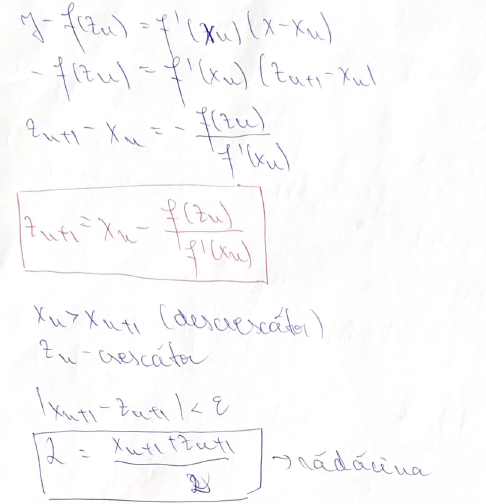 y - f(zn) = f'(xn) (x - xn)
- f(zn) = f'(xn) (zn+1 - xn)
zn+1 - xn = - f(zn) / f'(xn)
zn+1 = xn - f(zn) / f'(xn)
xn > xn+1 (descrescător)
zn - crescător
|xn+1 - zn+1| < ε
2 = xn+1 + zn+1 / 2 → rădăcina